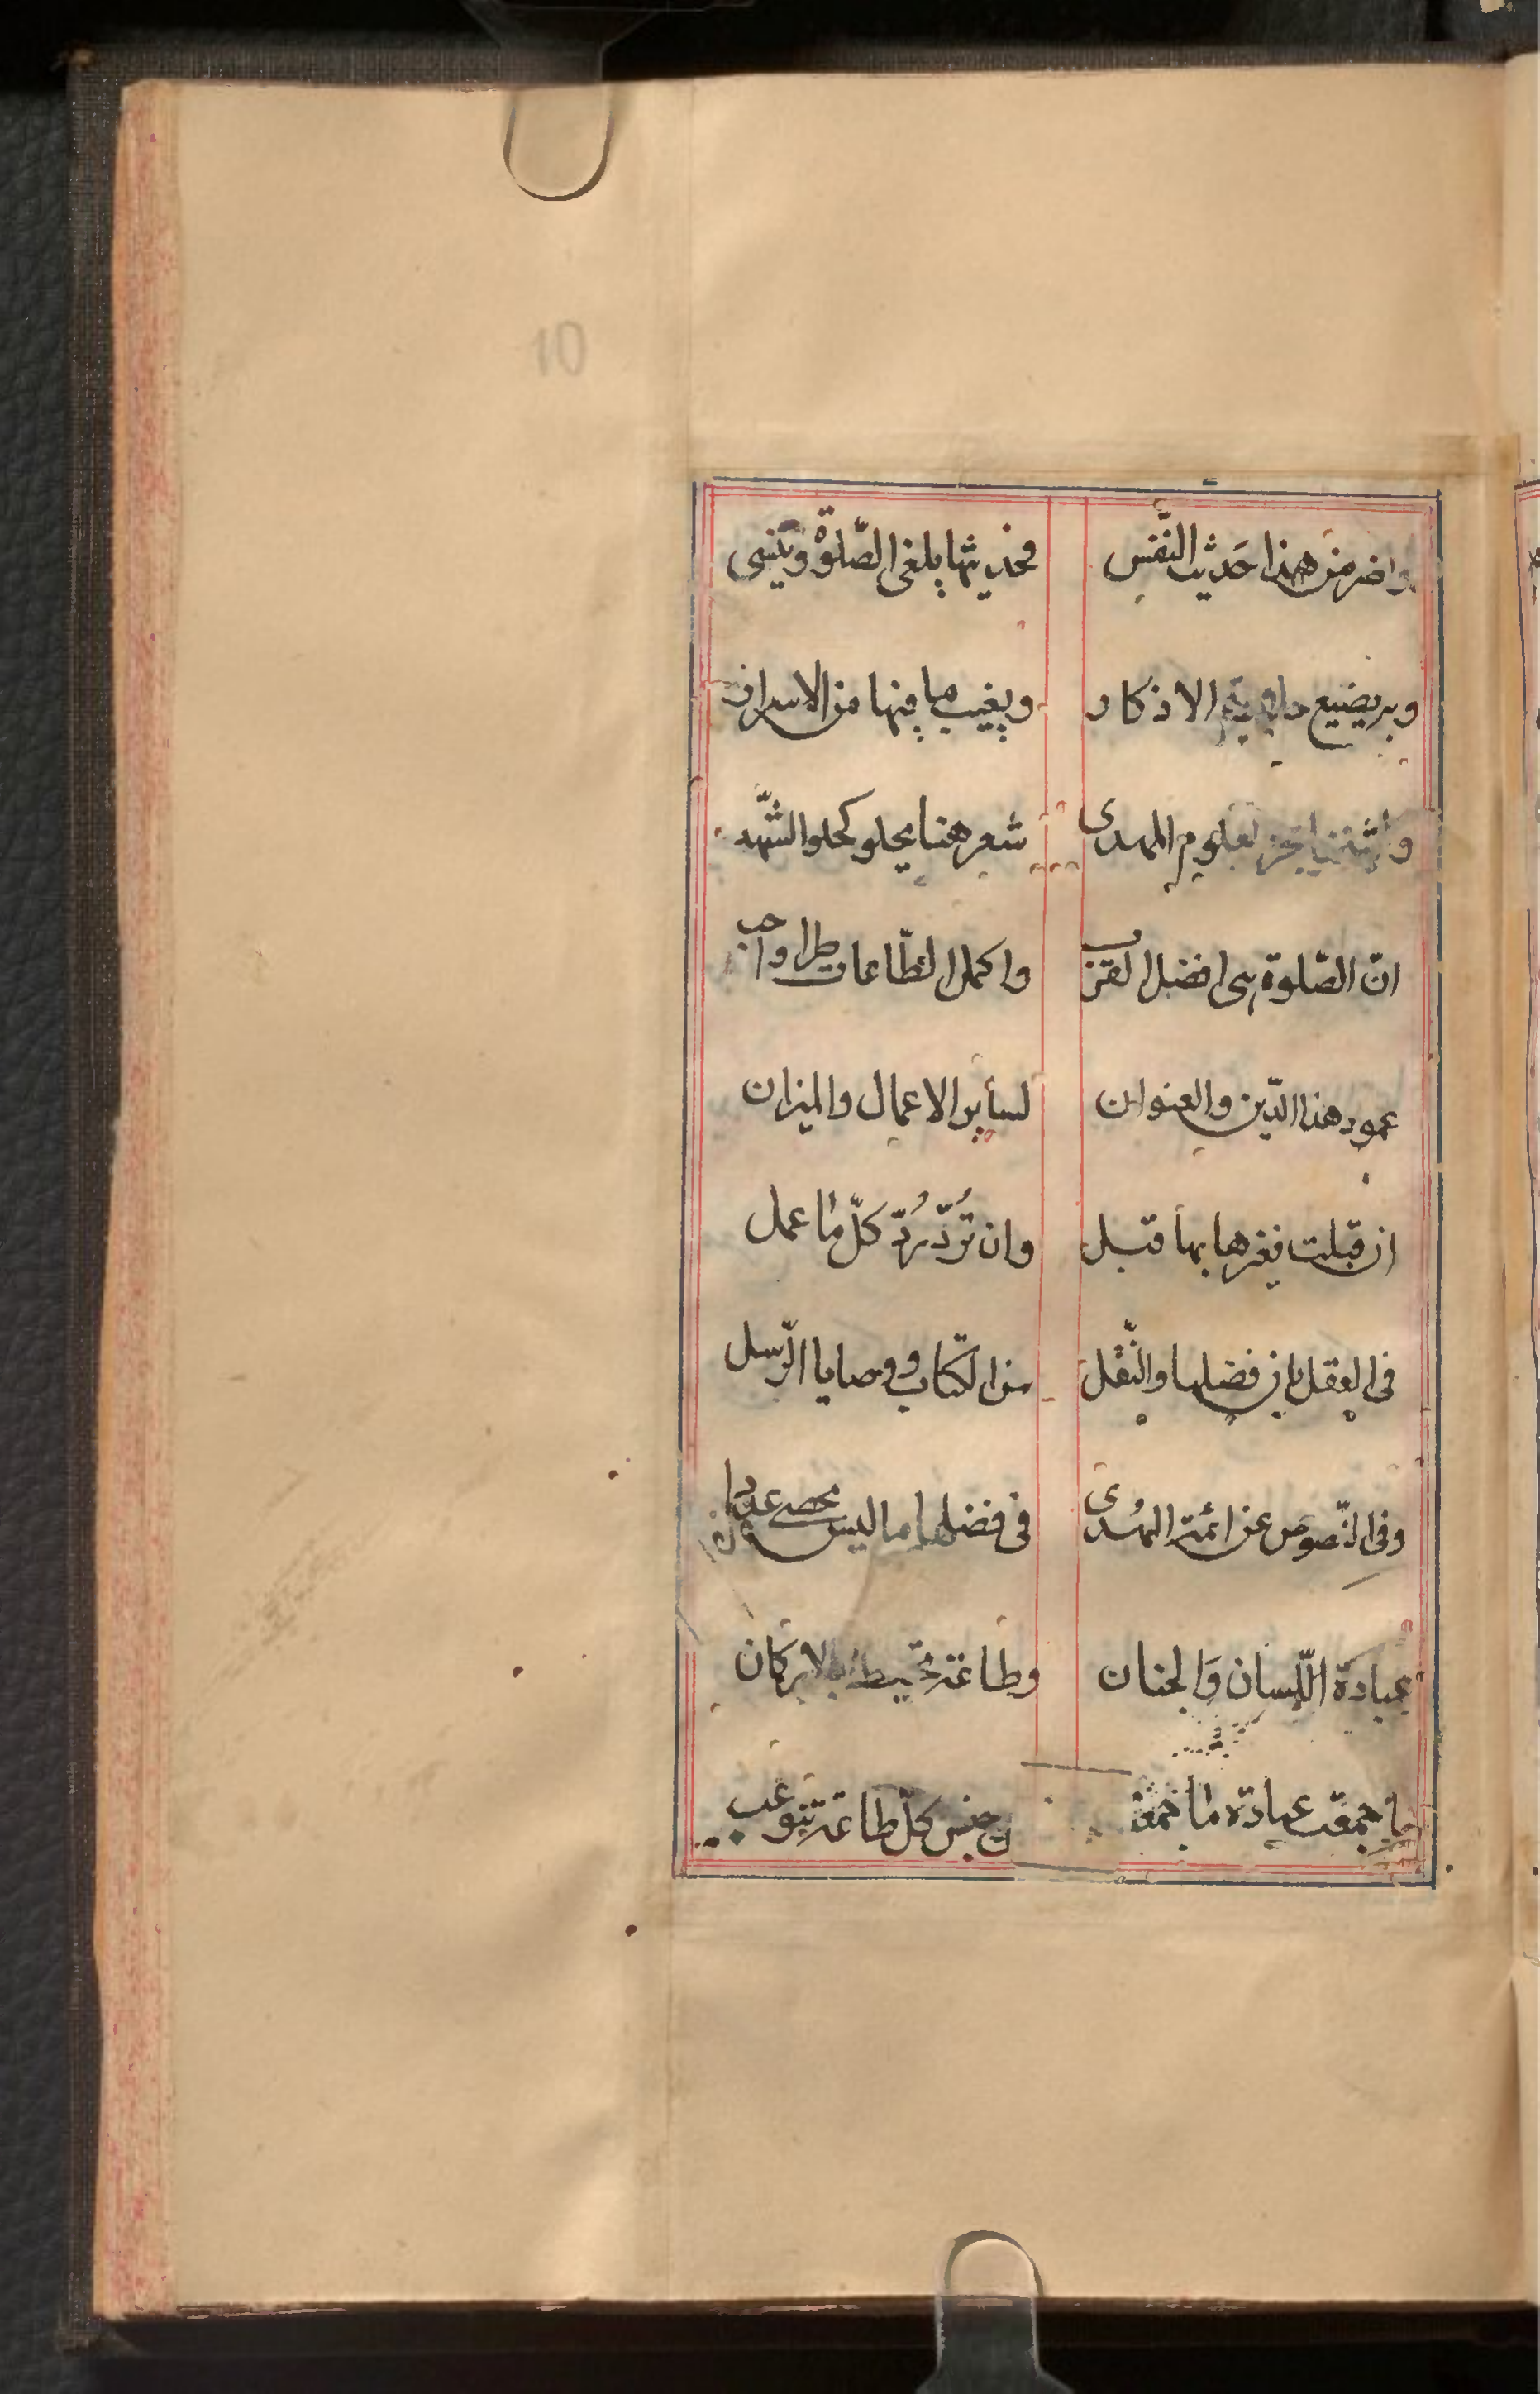 10
واضر من هذا حَديث النّفس فحديثها يلغى الصّلوة وينسى
وبه يضيع الاذكار ويغيب ما فيها من الاسرار
لعلوم المهدى شعر هنا يحلو كحلو الشّهد
انّ الصّلوة هى افضل القرب واكمل الطّاعات طرا واحب
عمود هذا الدّين والعنوان لسأير الاعمال والميزان
ان قبلت فغيرها بها قبل وان تُردّ رُدّ كلّ ما عمل
فى العقل بان فضلها والنّقل من الكتاب ووصايا الرّسل
وفى النّصوص عن ائمة الهُدى فى فضلها ما ليس يحصى عددا
عبادة اللّسان وَالجنان وطاعة تحيط بالاركان
ما جمعت عبادة ما جمعت من جنس كلّ طاعة تنوعت